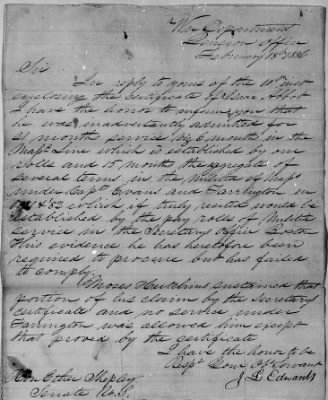 War Department
Pension Office
February 18th 1836
Sir
In reply to yours of the 11th inst
enclosing the certificate of Isaac Abbot
I have the honor to inform you that
he was inadvertently admitted for
21 month service viz 6 months in the
Massts Line which is established by our
rolls and 15 months the aggregate of
several terms in the militia of Massts
under Capts Evans and Farrington in
& 82 which if truly rendered would be
established by the pay rolls of Militia
service in the Secretary Office Boston
This evidence he has heretofore been
required to procure but has failed
to comply.
Moses Hutchins sustained that
portion of his claim by the Secretary
certificate and no service under
Farrington was allowed him except
that proved by the certificate
I have the honor to be
Respy Your Ob Servant
J L Edwards
Hon Ether Shepley
Senate U.S.